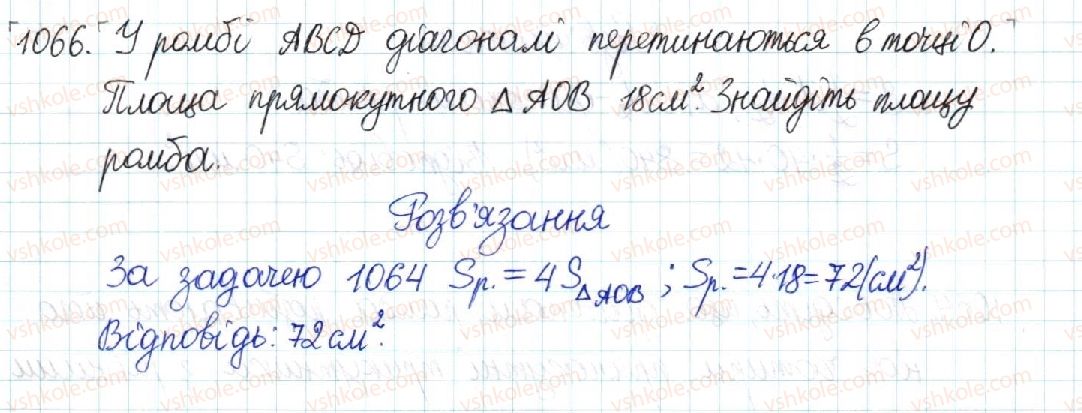 1066. У ромбі ABCD діагоналі перетинаються в точці O.
Площа прямокутного △AOB 18см². Знайдіть площу
ромба.
Розв'язання
За задачею 1064 Sр. = 4S△AOB ; Sр. = 4·18 = 72(см²).
Відповідь: 72 см².